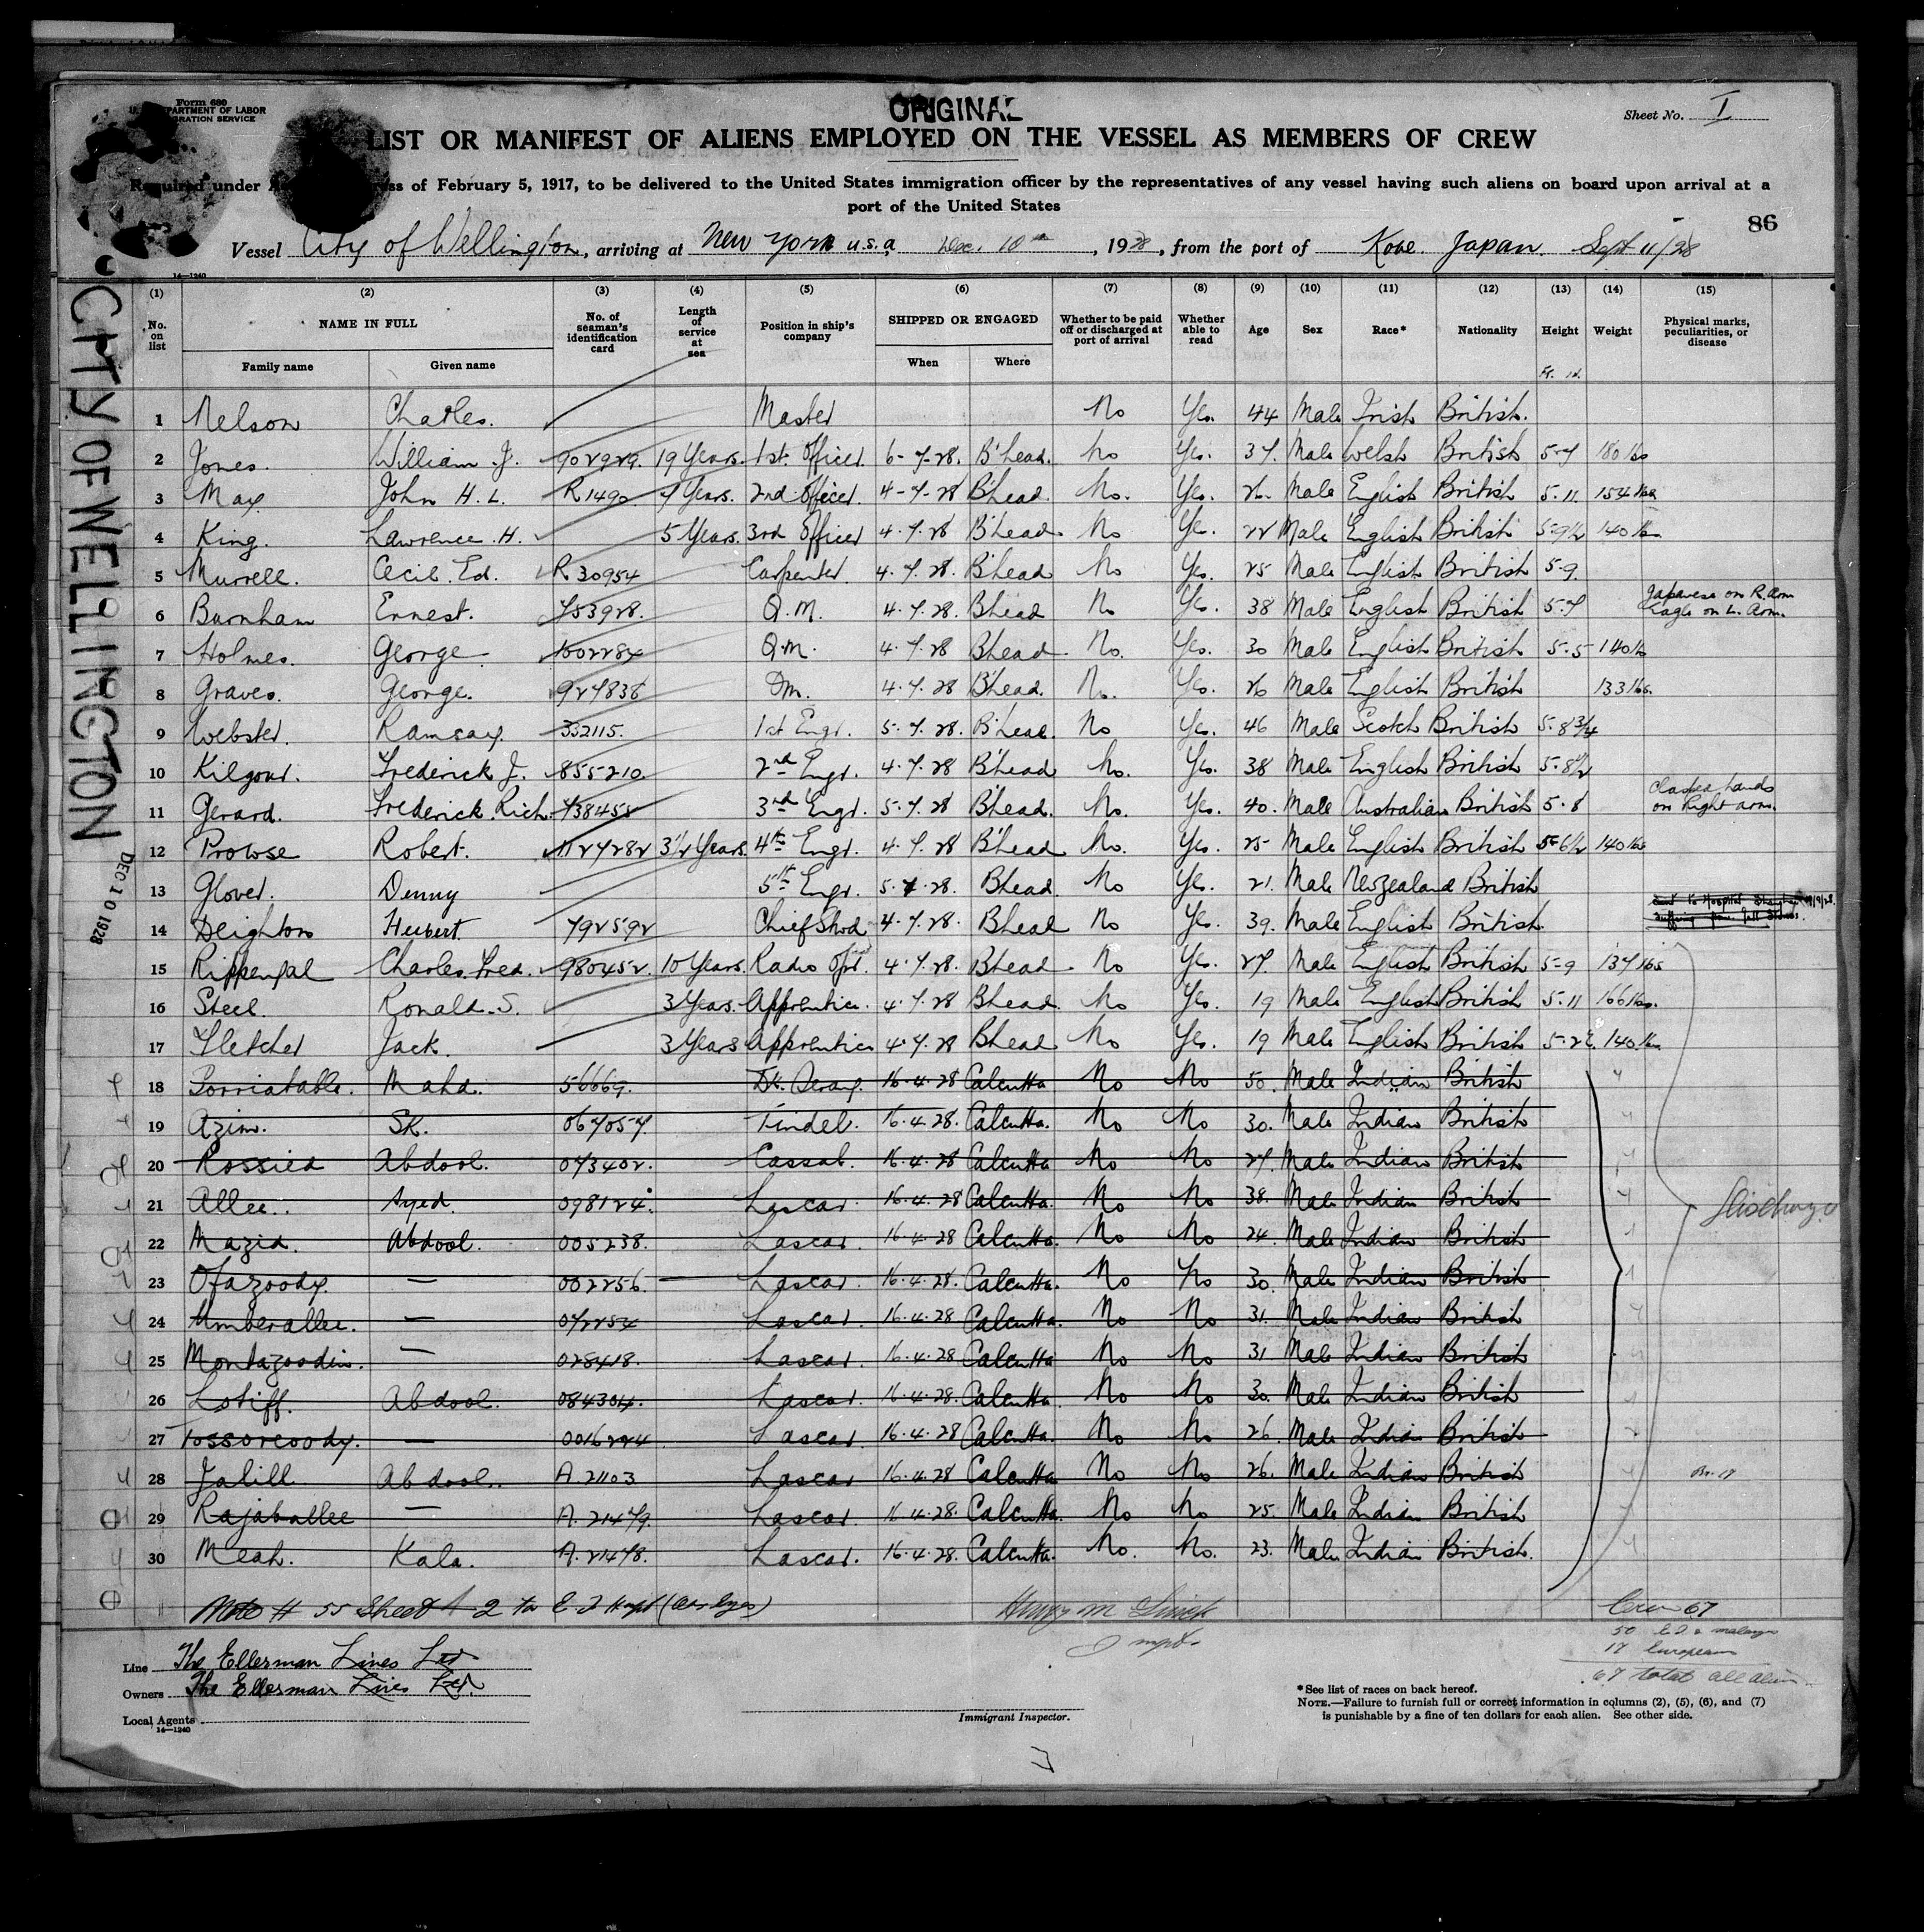 Form 680
DEPARTMENT OF LABOR
IMMIGRATION SERVICE
ORIGINAL
Sheet No. I
LIST OR MANIFEST OF ALIENS EMPLOYED ON THE VESSEL AS MEMBERS OF CREW
Required under Act of Congress of February 5, 1917, to be delivered to the United States immigration officer by the representatives of any vessel having such aliens on board upon arrival at a
port of the United States
86
Vessel City of Wellington, arriving at New York U.S.A. Dec. 10th, 1928, from the port of Kobe Japan. Sept 11/28
14—1240
CITY OF WELLINGTON
DEC 10 1928
(1) (2) (3) (4) (5) (6) (7) (8) (9) (10) (11) (12) (13) (14) (15)
No. on list NAME IN FULL No. of seaman's identification card Length of service at sea Position in ship's company SHIPPED OR ENGAGED Whether to be paid off or discharged at port of arrival Whether able to read Age Sex Race* Nationality Height Weight Physical marks, peculiarities, or disease
Family name Given name When Where
1 Nelson Charles. Master No Yes. 44 Male Irish British.
2 Jones. William J. 902929. 19 Years. 1st. Officer 6-7-28. B'head. No Yes. 37. Male Welsh British 5-7 180 lbs
3 May. John H. L. R1490 7 Years. 2nd Officer 4-7-28 B'head. No. Yes. 26. Male English British 5.11. 154 lbs
4 King. Lawrence. H. 5 Years. 3rd Officer 4.7.28 B'head. No Yes. 22 Male English British 5-9½ 140 lbs
5 Murrell. Cecil. Ed. R 30954 Carpenter. 4.7.28. B'head No Yes. 25 Male English British 5-9.
6 Burnham Ernest. 753928. Q.M. 4.7.28. Bhead No Yes. 38 Male English British 5.7 Japanese on R. Arm Eagle on L. Arm.
7 Holmes. George Q.M. 4.7.28 Bhead. No. Yes. 30 Male English British 5.5 140 lbs
8 Graves. George. 927836 Q.M. 4.7.28 B'head. No. Yes. 26 Male English British 133 lbs.
9 Webster. Ramsay. 332115. 1st Engr. 5.7.28. B'head. No Yes. 46 Male Scotch British 5.8¾
10 Kilgour. Frederick J. 855210. 2nd Engr. 4.7.28 B'head No. Yes. 38 Male English British 5.8½
11 Gerard. Frederick. Rich. 738455 3rd Engr. 5.7.28 B'head. No. Yes. 40. Male Australian British 5.8 Clasped hands on Right arm.
12 Prowse Robert. 3½ Years. 4th Engr. 4.7.28 B'head No. Yes. 25 Male English British 5-6½ 140 lbs
13 Glover. Denny 5th Engr. 5.7.28. Bhead. No Yes. 21. Male NewZealand British
14 Deighton Hubert. 792592 Chief Stwd 4.7.28. Bhead No Yes. 39. Male English British.
15 Rippengal Charles. Fred. 980452. 10 Years. Radio Opr. 4.7.28. Bhead. No Yes. 27. Male English British 5-9 137 lbs
16 Steel. Ronald. S. 3 Years. Apprentice. 4.7.28 Bhead. No Yes. 19 Male English British 5.11 166 lbs.
17 Fletcher Jack. 3 Years Apprentice 4.7.28 Bhead. No Yes. 19 Male English British 140 lbs.
18 Mahd. 56669. 16.4.28 Calcutta No No 50. Male Indian British
19 Azim. SK. 067057. Tindel. 16.4.28. Calcutta. No No 30. Male Indian British
20 Rossied Abdool. 073402. Cassab. 16.4.28 Calcutta No No 27. Male Indian British
21 Allee. Syed. 098124. Lascar. 16.4.28 Calcutta. No No 38. Male Indian British
22 Mazid. Abdool. 005238. Lascar. 16.4.28 Calcutta. No No 24. Male Indian British
23 Ofazoody. — 002256 Lascar. 16.4.28. Calcutta. No No 30. Male Indian British
24 Umberallee. — 072254 Lascar. 16.4.28 Calcutta. No No 31. Male Indian British
25 Montazoodin. — 028418. Lascar. 16.4.28 Calcutta No No 31 Male Indian British
26 Lotiff. Abdool. 084304. Lascar. 16.4.28. Calcutta. No No 30. Male Indian British
27 Tossorcoody. — 0016224 Lascar. 16.4.28 Calcutta. No No 26. Male Indian British
28 Jalill Abdool. A. 21103 Lascar 16.4.28 Calcutta. No No 26. Male Indian British
29 Rajaballee — A. 21479. Lascar. 16.4.28. Calcutta. No No 25. Male Indian British
30 Meah. Kala. A. 21478. Lascar. 16.4.28. Calcutta. No. No. 23. Male Indian British.
Note # 55 Sheet 2
Crew 67
17 European
67 total all alien
Line The Ellerman Lines Ltd
Owners The Ellerman Lines Ltd.
Local Agents
14—1240
Immigrant Inspector.
*See list of races on back hereof.
NOTE.—Failure to furnish full or correct information in columns (2), (5), (6), and (7)
is punishable by a fine of ten dollars for each alien. See other side.